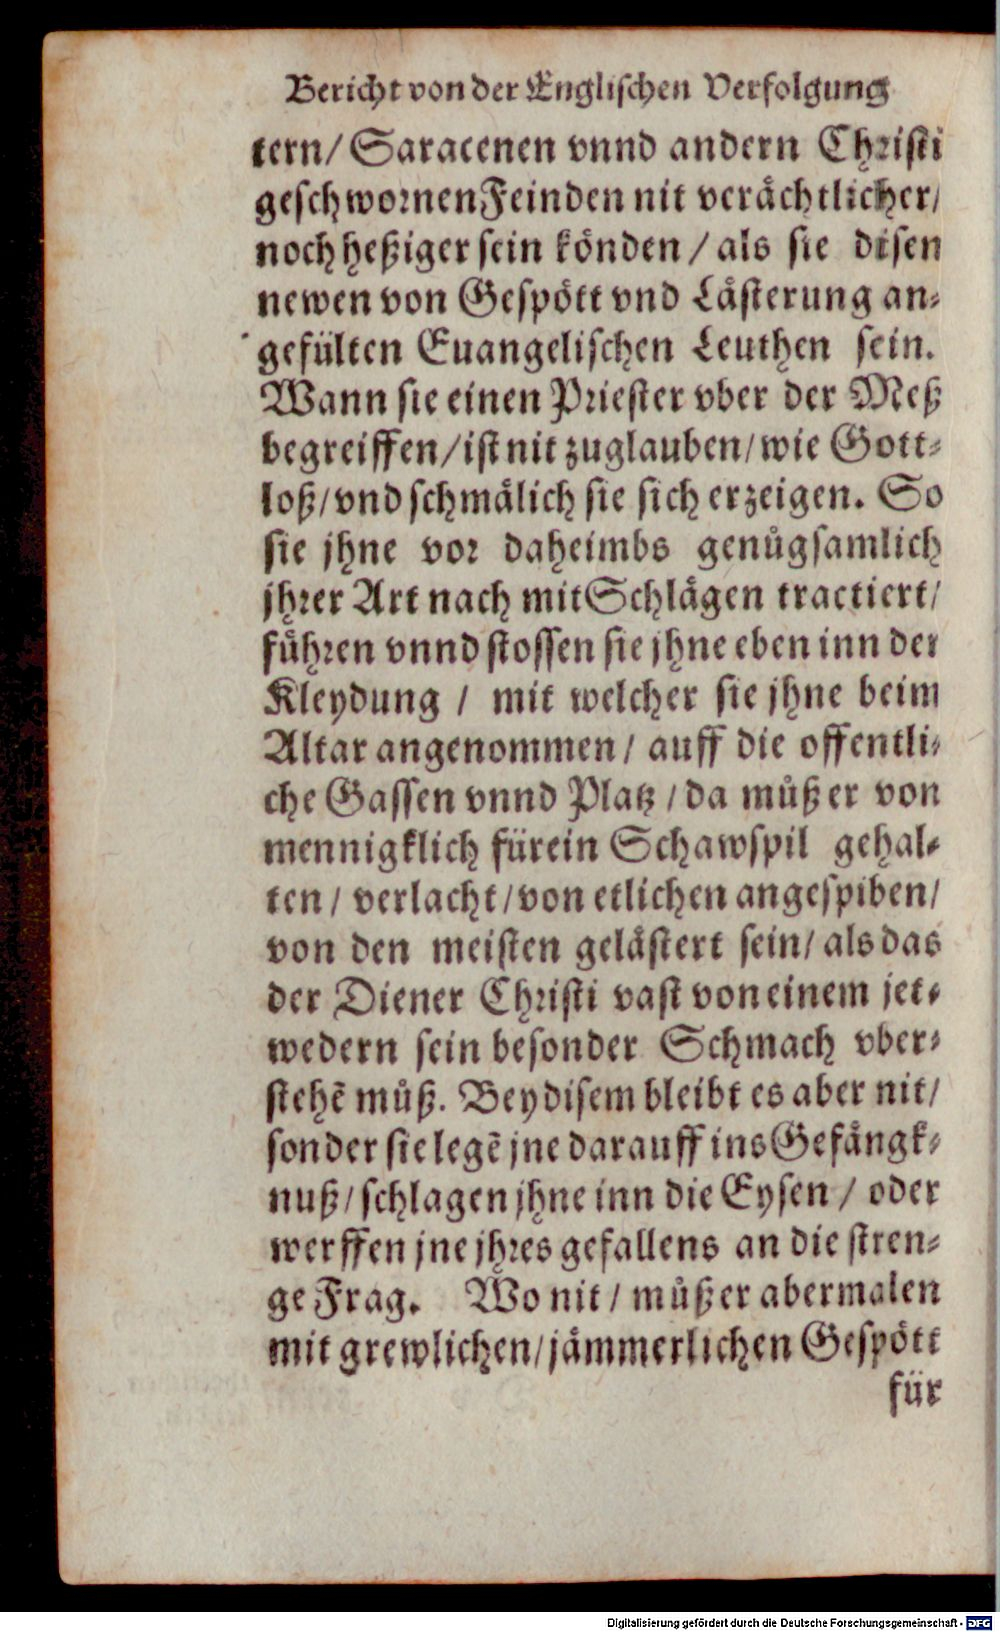 Bericht von der Englischen Verfolgung
tern/ Saracenen vnnd andern Christi
geschwornen Feinden nit verächtlicher/
noch heßiger sein könden / als sie disen
newen von Gespött vnd Lästerung an-
gefülten Euangelischen Leuthen sein.
Wann sie einen Priester vber der Meß
begreiffen/ist nit zuglauben/wie Gott-
loß/vnd schmälich sie sich erzeigen. So
sie jhne vor daheimbs genůgsamlich
jhrer Art nach mit Schlägen tractiert/
fůhren vnnd stossen sie jhne eben inn der
Kleydung / mit welcher sie jhne beim
Altar angenommen/ auff die offentli-
che Gassen vnnd Platz / da můß er von
mennigklich für ein Schawspil gehal-
ten/ verlacht/von etlichen angespiben/
von den meisten gelästert sein/ als das
der Diener Christi vast von einem jet-
wedern sein besonder Schmach vber-
stehẽ můß. Bey disem bleibt es aber nit/
sonder sie legẽ jne darauff ins Gefängk-
nuß/schlagen jhne inn die Eysen / oder
werffen jne jhres gefallens an die stren-
ge Frag. Wo nit / můß er abermalen
mit grewlichen/jämmerlichen Gespött
für
Digitalisierung gefördert durch die Deutsche Forschungsgemeinschaft - DFG